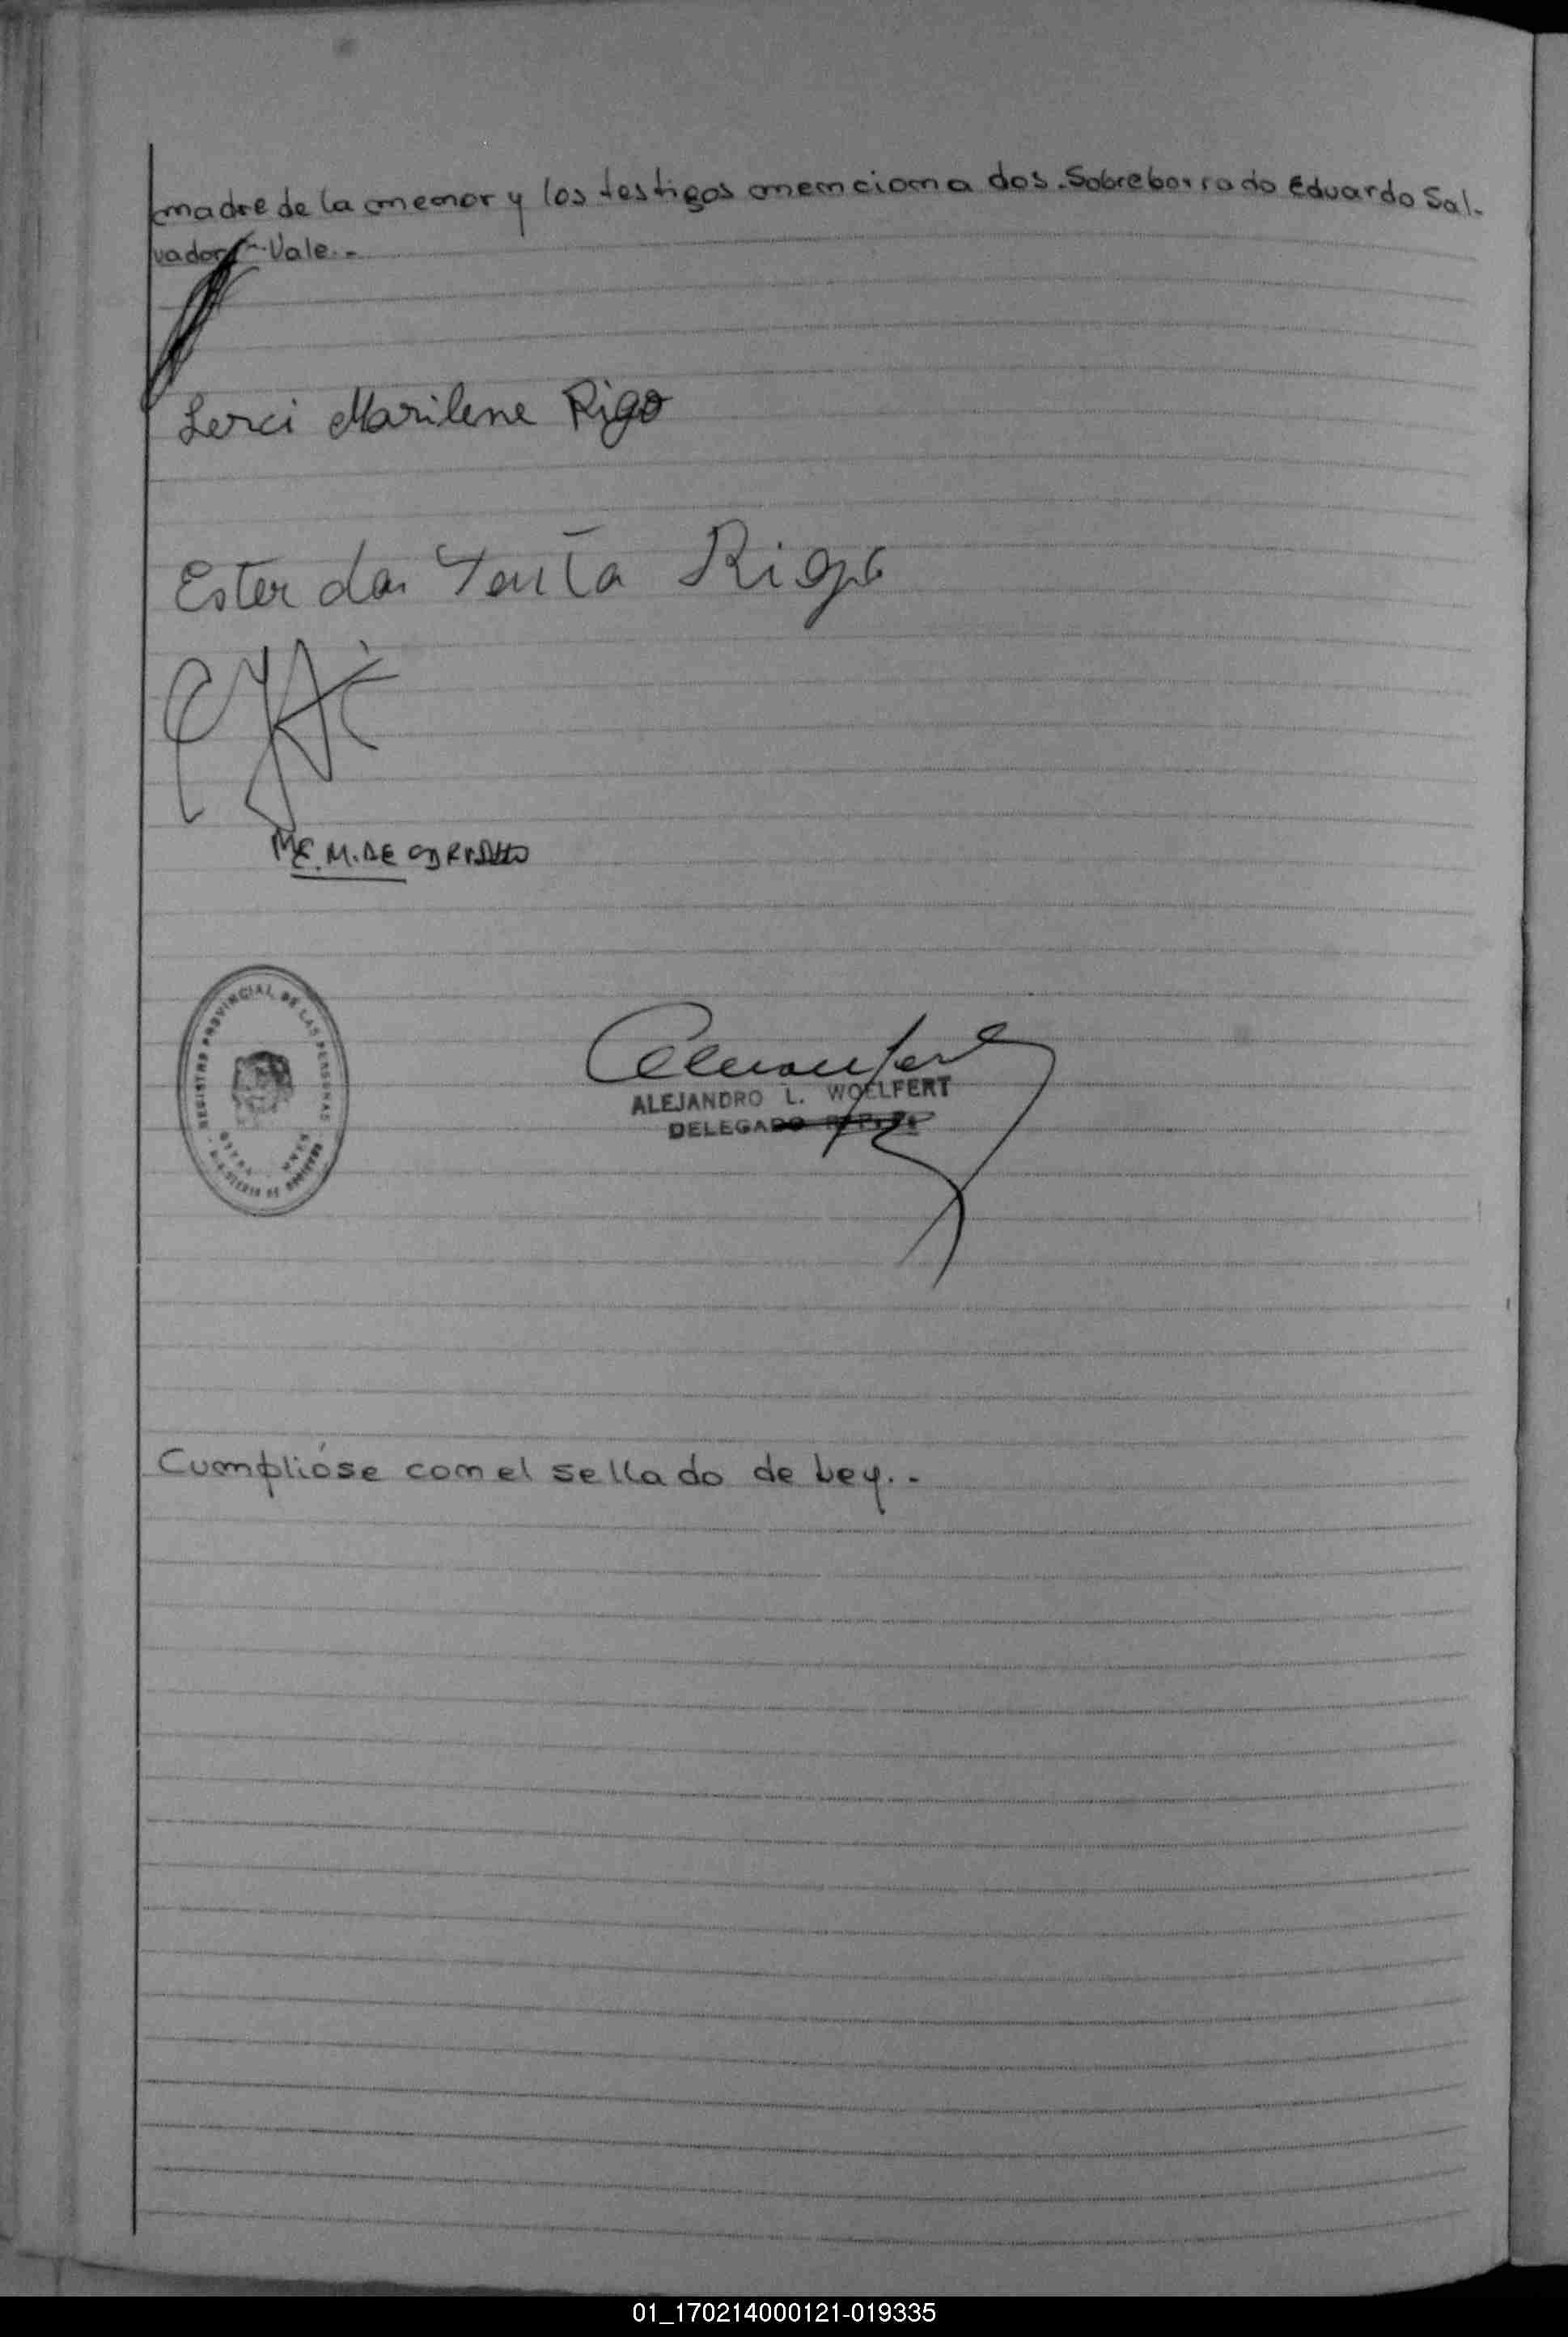 madre de la menor y los testigos menciona dos. Sobreborrado Eduardo Sal-
vador - Vale.-
Lerci Marilene Rigo
Ester da Rigo
M.E.M. DE
REGISTRO PROVINCIAL DE LAS PERSONAS
ALEJANDRO L. WOELFERT
DELEGADO
Cumplióse con el sellado de Ley..-
01_170214000121-019335